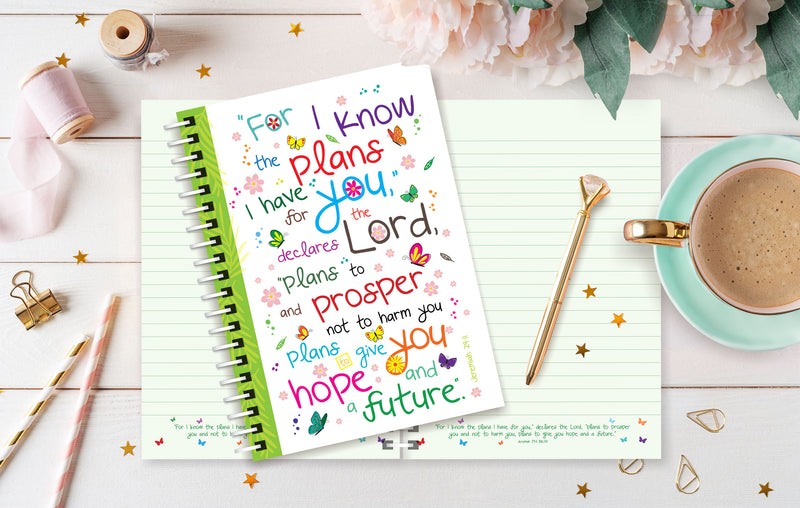 "For I know
the plans
I have
for you,"
declares the Lord,
"plans to
and prosper
not to harm you
plans to give you
hope and
a future."
Jeremiah 29:11
"For I know the plans I have
you and not to h
"For I know the plans I have for you," declares the Lord, "plans to prosper
you and not to harm you, plans to give you hope and a future."